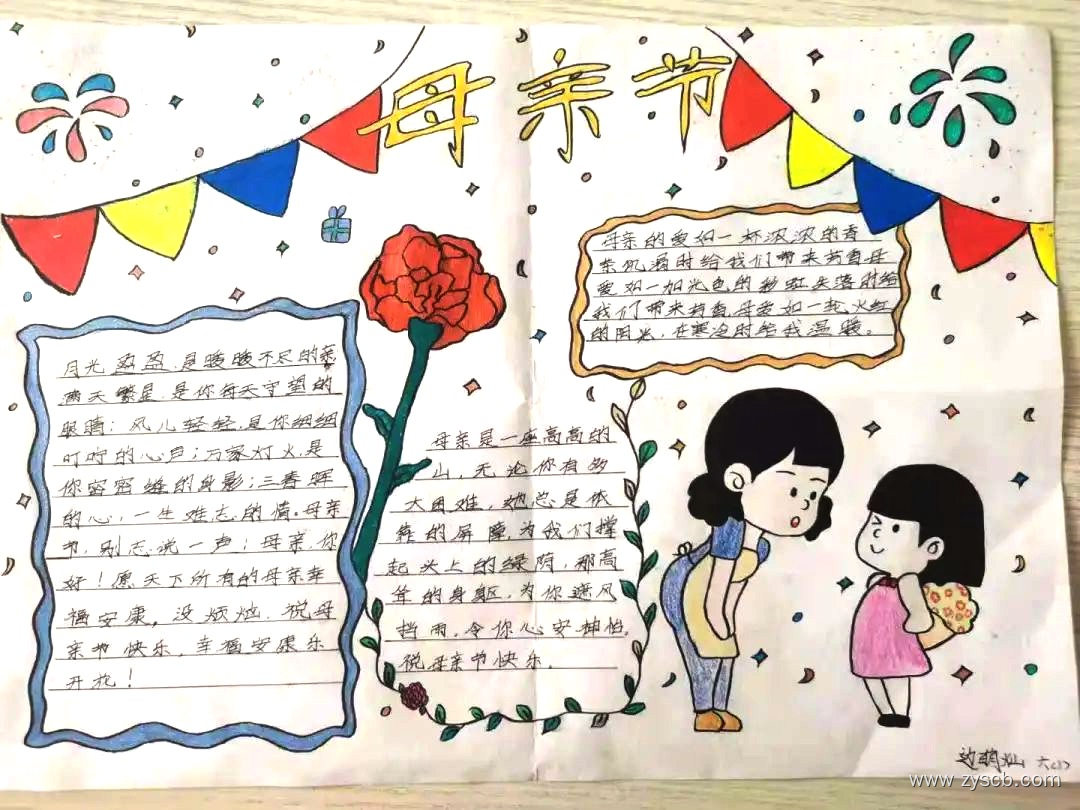 母亲节
月光盈盈,是暖暖不尽的亲
满天繁星,是你每天守望的
眼睛;风儿轻轻,是你细细
叮咛的心声;万家灯火,是
你密密缝的身影;三春晖
的心,一生难忘的情。母亲
节,别忘说一声:母亲,你
好!愿天下所有的母亲幸
福安康,没烦恼,祝母
亲节快乐,幸福安康乐
开花!
母亲是一座高高的
山,无论你有多
大困难,她总是依
靠的屏障,为我们撑
起头上的绿荫,那高
耸的身躯,为你遮风
挡雨,令你心安神怡。
祝母亲节快乐。
母亲的爱如一杯浓浓的香
茶,饥渴时给我们带来芳香,母
爱如一如光色的彩虹,失落时给
我们带来芳香,母爱如一轮火红
的阳光,在寒冷时给我温暖。
六(1)
www.zyscb.com